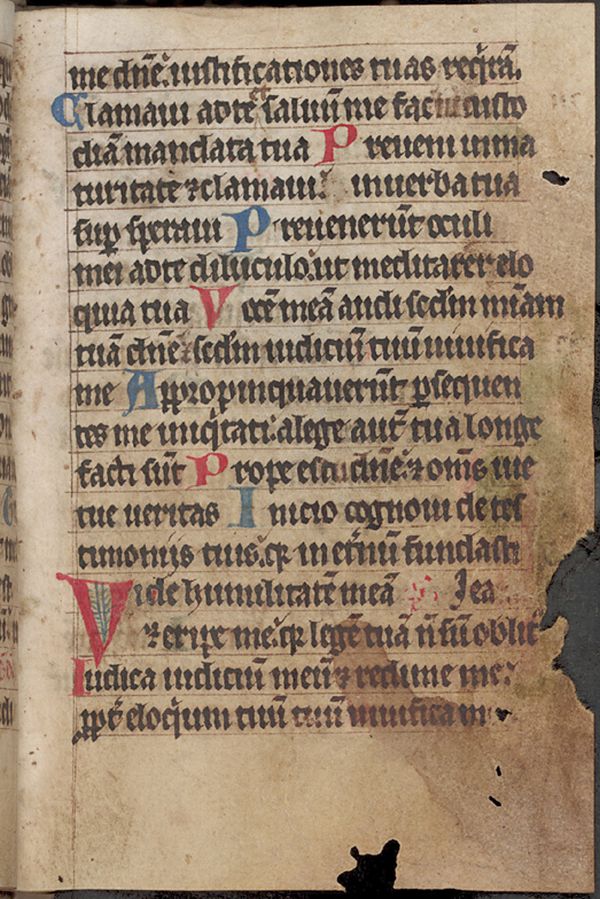 me dn̄e. iustificationes tuas reqͥrā.
Clamaui ad te saluū me fac ut custo
diā mandata tua Preueni in ma
turitate ⁊ clamaui: in uerba tua
suꝑ speraui Preuenerūt oculi
mei ad te diluculo. ut meditarer elo
quia tua Vocē meā audi scd̄m mīam
tuā dn̄e: ⁊ scd̄m iudiciū tuū uiuifica
me Appropinquauerūt ꝑsequen
tes me iniqͥtati: a lege aut̄ tua longe
facti sūt Prope es tu dn̄e: ⁊ om̄s uie
tue ueritas Inicio cognoui de tes
timoniis tuis. qꝫ in et̄nū fundasti
Vide humilitatē meā
⁊ eripe me. qꝫ legē tuā nō sū oblit᷒
Iudica iudiciū meū ⁊ redime me:
ꝓpt̄ eloqͥum tuū tuū uiuifica m